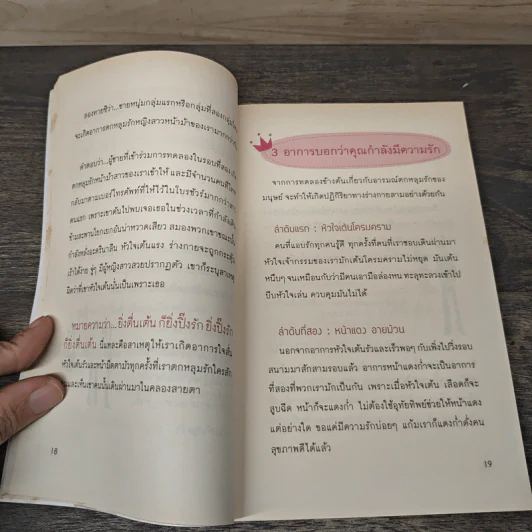 ลองทายซิว่า...ชายหนุ่มกลุ่มแรกหรือกลุ่มที่สองกลุ่มไหน
จะเกิดอาการตกหลุมรักหญิงสาวหน้าม้าของเรามากกว่า
คำตอบว่า...ผู้ชายที่เข้าร่วมการทดลองในรอบที่สอง
ตกหลุมรักหน้าม้าสาวของเราเข้าให้ และมีจำนวนคนที่โทร
กลับมาตามเบอร์โทรศัพท์ที่ให้ไว้ในโบรชัวร์มากกว่า
คนแรก เพราะเขาดันไปพบเจอเธอในช่วงเวลาที่กำลังเดิน
ข้ามสะพานโยกเยกอันน่าหวาดเสียว สมองพวกเขาขณะนั้น
กำลังหลั่งอะดรีนาลีน หัวใจเต้นแรง ร่างกายจะถูกกระตุ้น
เร้าได้ง่าย จู่ๆ มีผู้หญิงสาวสวยปรากฏตัว เขาก็ระบุสาเหตุ
ผิดว่าที่เขาหัวใจเต้นนั่นเป็นเพราะเธอ
หมายความว่า...ยิ่งตื่นเต้น ก็ยิ่งปิ๊งรัก ยิ่งปิ๊งรัก
ก็ยิ่งตื่นเต้น นี่แหละคือสาเหตุให้เราเกิดอาการใจสั่น
หัวใจเต้นรัวและหน้ามืดตามัวทุกครั้งที่เราตกหลุมรักใครสัก
คนและเห็นเขาคนนั้นเดินผ่านมาในคลองสายตา
18
3 อาการบอกว่าคุณกำลังมีความรัก
จากการทดลองข้างต้นเกี่ยวกับอารมณ์ตกหลุมรักของ
มนุษย์ จะทำให้เกิดปฏิกิริยาทางร่างกายสามอย่างด้วยกัน
ลำดับแรก : หัวใจเต้นโครมคราม
คนที่แอบรักทุกคนรู้ดี ทุกครั้งที่คนที่เราชอบเดินผ่านมา
หัวใจเจ้ากรรมของเรามักเต้นโครมครามไม่หยุด มันเต้น
หนึบๆ จนเหมือนกับว่ามีคนเอามือล่องหน ทะลุทะลวงเข้าไป
บีบหัวใจเล่น ควบคุมมันไม่ได้
ลำดับที่สอง : หน้าแดง อายม้วน
นอกจากอาการหัวใจเต้นรัวและเร็วพอๆ กับเพิ่งไปวิ่งรอบ
สนามมาสักสามรอบแล้ว อาการหน้าแดงก่ำจะเป็นอาการ
ที่สองที่พวกเรามักเป็นกัน เพราะเมื่อหัวใจเต้น เลือดก็จะ
สูบฉีด หน้าก็จะแดงก่ำ ไม่ต้องใช้อุทัยทิพย์ช่วยให้หน้าแดง
แต่อย่างใด ขอแค่มีความรักบ่อยๆ แก้มเราก็แดงก่ำดั่งคน
สุขภาพดีได้แล้ว
19